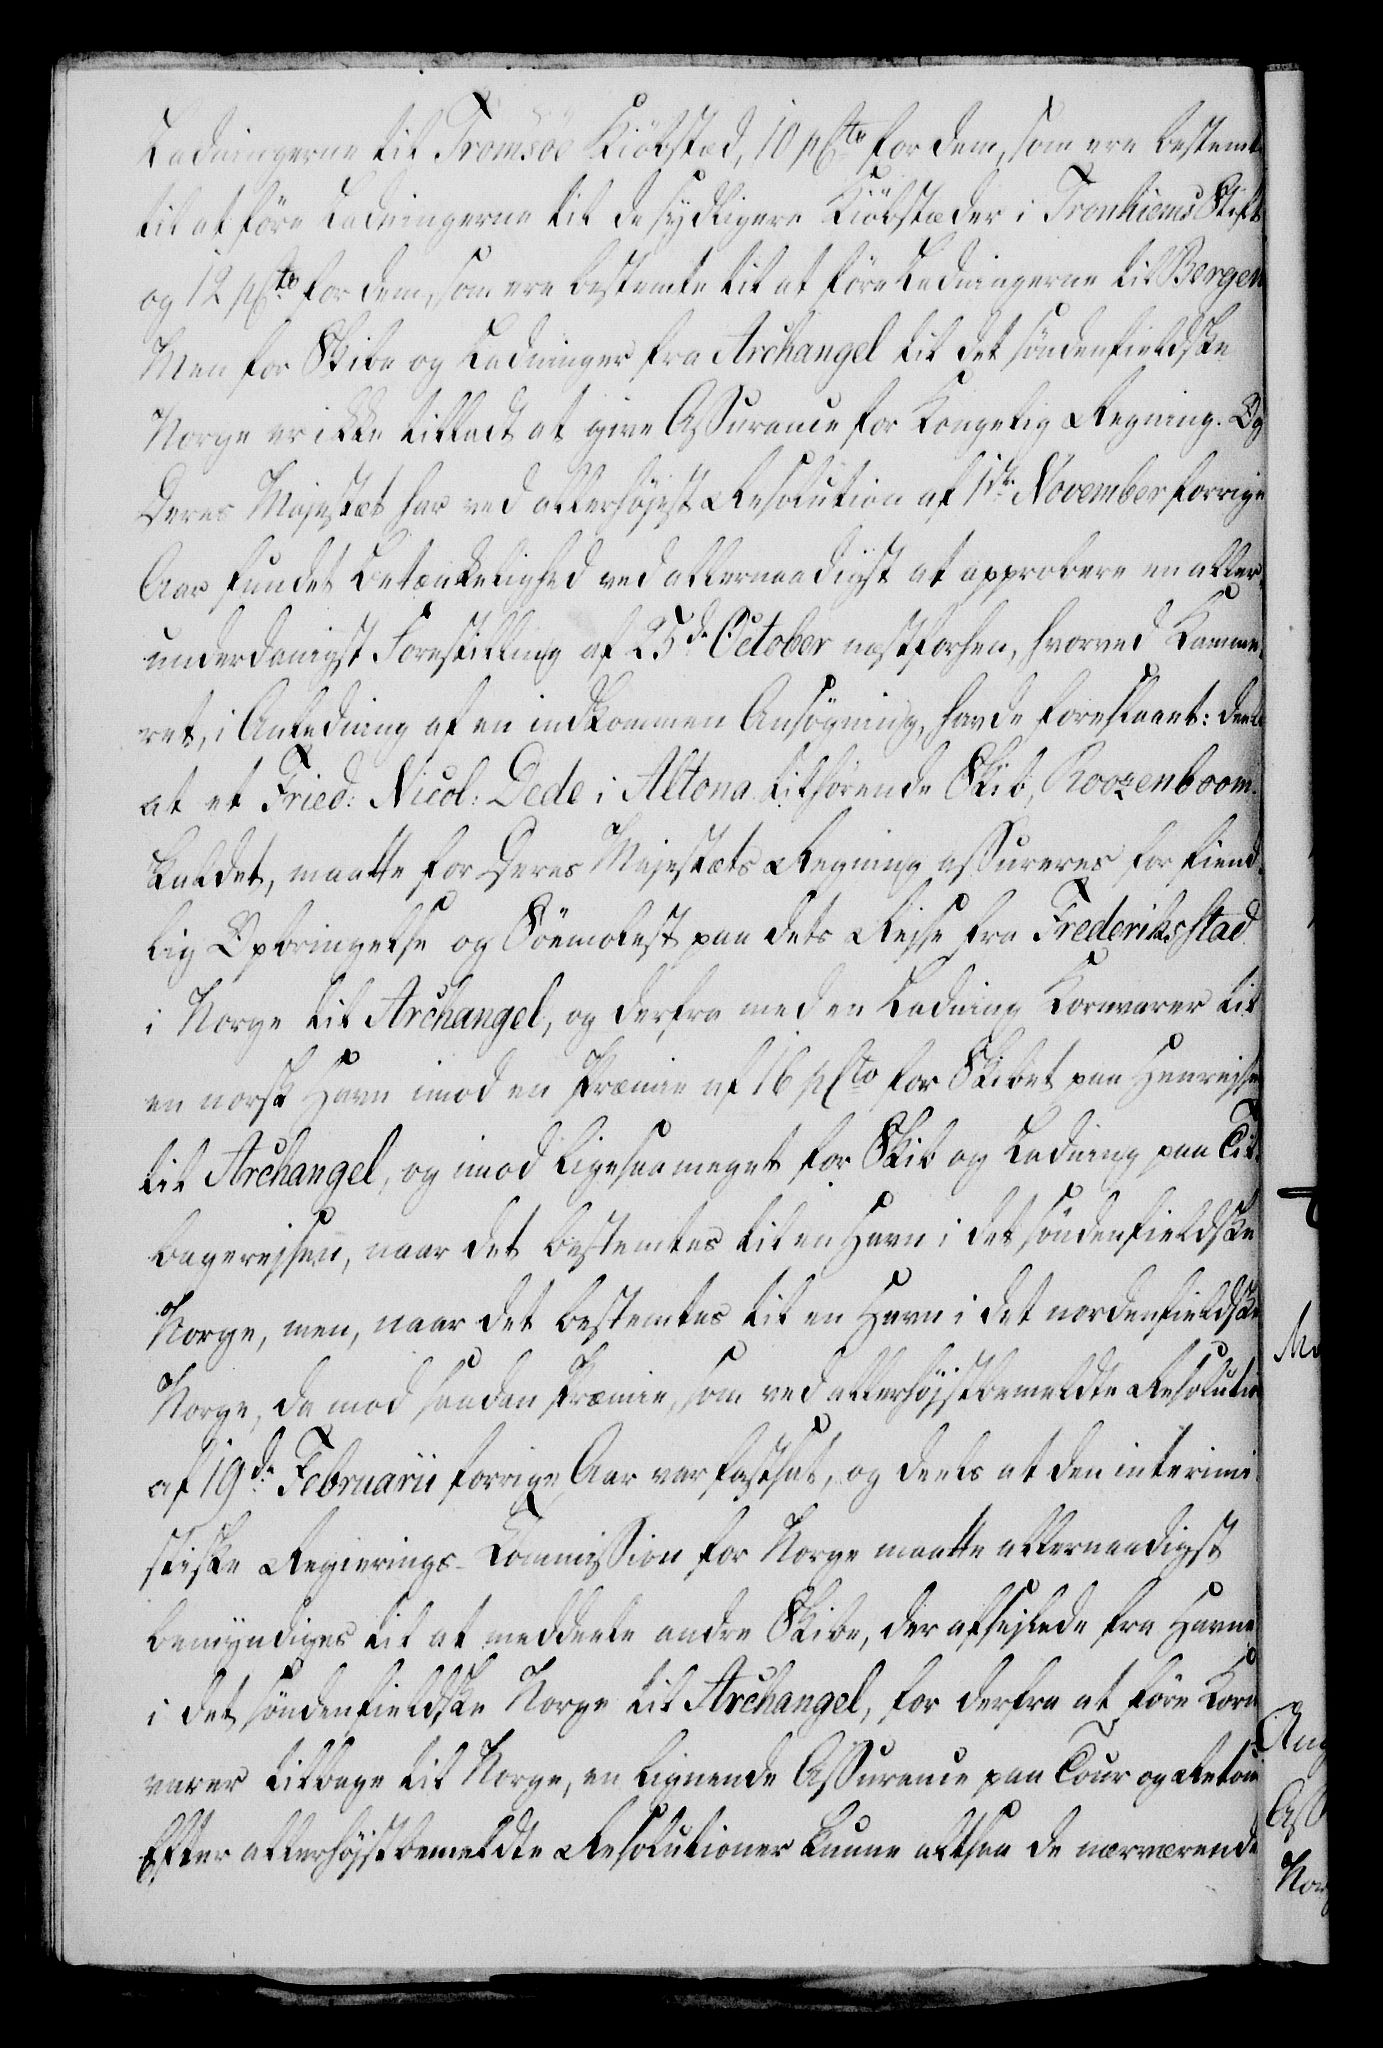 Ladningerne til Tromsöe Kiöbstæd, 10 pCto for dem, som ere bestemte
til at före Ladningerne til de sydligere Kiöbstæder i Tronhiems Stift
og 12 pCto for dem, som ere bestemte til at före Ladningerne til Bergen
Men for Skibe og Ladninger fra Archangel til det söndenfieldske
Norge er ikke tilladt at give Assurance for Kongelig Regning. Og
Deres Majestæt har ved allerhöjest Resolution af 1ste November forrige
Aar fundet Betænkelighed ved allernaadigst at approbere en aller-
underdanigst Forestilling af 25de October næstforhen, hvorved Kamme-
ret, i Anledning af en indkommen Ansögning, havde foreslaaet: deels
at et Fried: Nicol: Dede i Altona tilhörende Skib, Roozenboom
kaldet, maatte for Deres Majestæts Regning assureres for fiend-
lig Opbringelse og Söemolest paa dets Rejse fra Frederiksstad
i Norge til Archangel, og derfra med en Ladning Kornvarer til
en norsk Havn imod en Præmie af 16 pCto for Skibet paa Henrejsen
til Archangel, og imod ligesaameget for Skib og Ladning paa Til-
bagerejsen, naar det bestemtes til en Havn i det söndenfieldske
Norge, men, naar det bestemtes til en Havn i det nordenfieldske
Norge, da mod saadan Præmie, som ved allerhöjstbemeldte Resolution
af 19de Februarii forrige Aar var fastsat, og deels at den interimi-
stiske Regierings-Commission for Norge maatte allernaadigst
bemyndiges til at meddeele andre Skibe, der afsejlede fra Havne
i det söndenfieldske Norge til Archangel, for derfra at före Korn
varer tilbage til Norge, en lignende Assurance paa Tour og Retour
Efter allerhöjstbemeldte Resolutioner kunne altsaa de nærværende